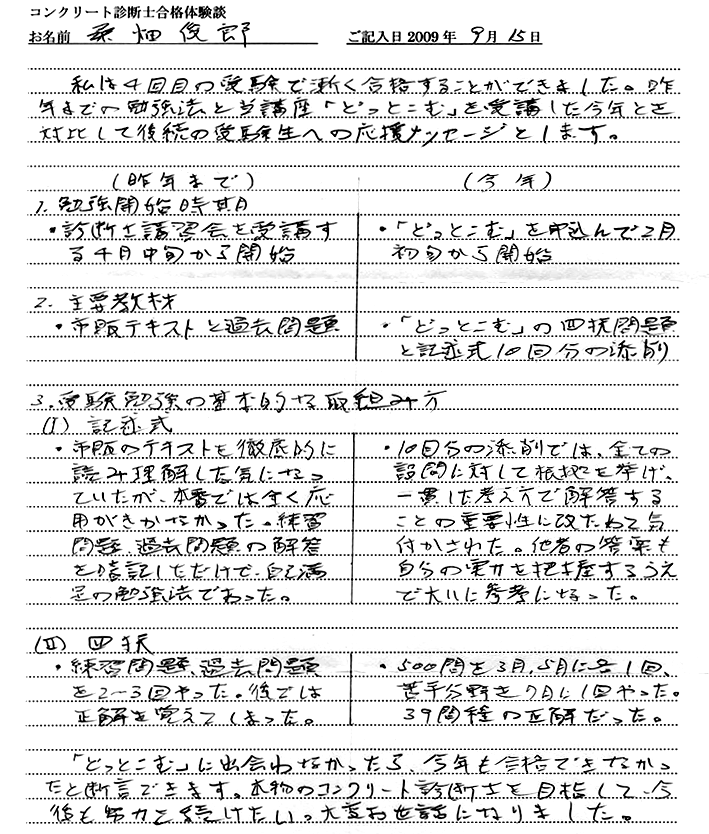 コンクリート診断士合格体験談
お名前 桑畑俊郎 ご記入日 2009年 9月 15日
私は4回目の受験で漸く合格することができました。昨
年までの勉強法と当講座「どっとこむ」を受講した今年とを
対比して後続の受験生への応援メッセージとします。
(昨年まで) (今年)
1. 勉強開始時期
・診断士講習会を受講す
る4月中旬から開始
・「どっとこむ」を申込んで2月
初旬から開始
2. 主要教材
・市販テキストと過去問題
・「どっとこむ」の四択問題
と記述式10回分の添削
3. 受験勉強の基本的な取組み方
(Ⅰ) 記述式
・市販のテキストを徹底的に
読み理解した気になっ
ていたが、本番では全く応
用がきかなかった。練習
問題、過去問題の解答
を暗記しただけで、自己満
足の勉強法であった。
・10回分の添削では、全ての
設問に対して根拠を挙げ、
一貫した考え方で解答する
ことの重要性に改たわて気
付かされた。他者の答案も
自分の実力を把握するうえ
で大いに参考になった。
(Ⅱ) 四択
・練習問題、過去問題
を2~3回やった。後では
正解を覚えてしまった。
・500問を3月、5月に各1回、
苦手分野を7月に1回やった。
39問程の正解だった。
「どっとこむ」に出会わなかったら、今年も合格できなかっ
たと断言できます。本物のコンクリート診断士を目指して、今
後も努力を続けたい。大変お世話になりました。